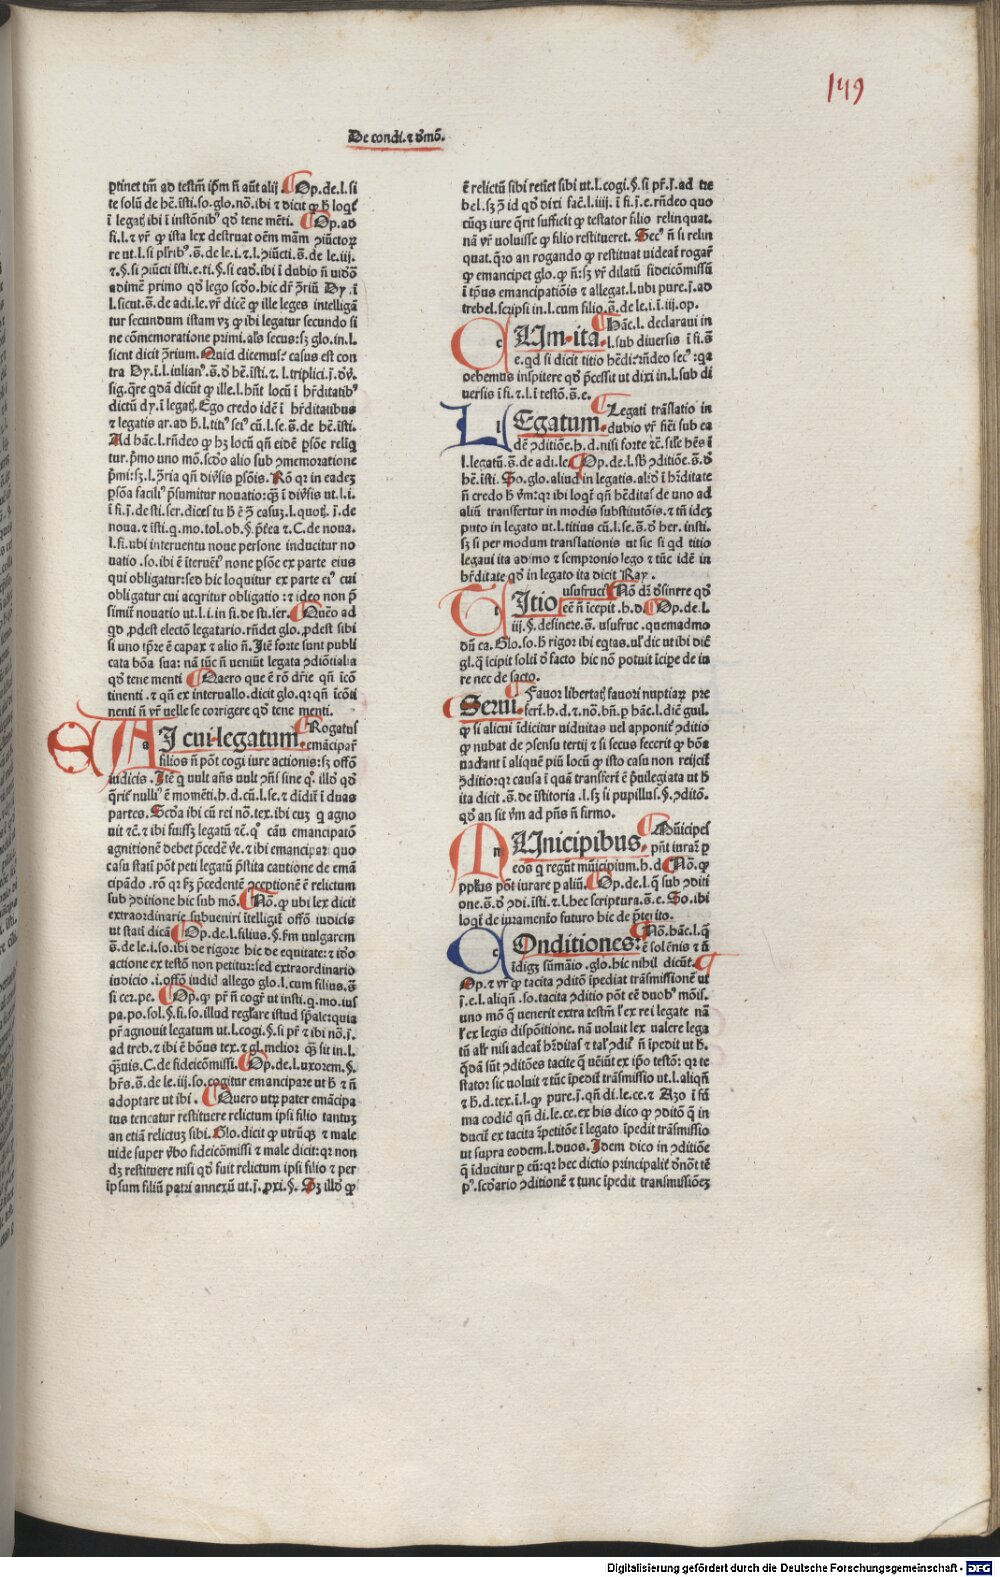 149
De condi. ⁊ ďmõ.
ꝑtinet tm̃ ad testm̃ ip̃m ñ aũt alij. Op. de. l. si
te solũ de hẽ. ĩsti. so. glo. nõ. ibi ⁊ dicit ꝙ ħ loqᷓ
ĩ legatꝭ ibi ĩ instõnibꝰ qđ tene mẽti. Op. ad
si. l. ⁊ vr̃ ꝙ ista lex destruat oẽm mãm ꝯiũctoꝝ
re ut. l. si pr̃ibꝰ. s̃. de le. i. ⁊. l. ꝯiũcti. s̃. de le. iij.
⁊. §. si ꝯiũcti ĩsti. e. ti. §. si eađ. ibi ĩ dubio ñ uiđo
adimẽ primo qđ lego scđo. hic dr̃ ꝯ̃riũ Dy. ĩ
l. sicut. s̃. de adi. le. vr̃ dicẽ ꝙ ille leges intelligã
tur secundum istam vꝫ ꝙ ibi legatur secundo si
ne cõmemoratione primi. als secus: sꝫ glo. in. l.
sicut dicit ꝯ̃rium. Quid dicemus: casus est con
tra Dy. ĩ. l. iulianꝰ. s̃. đ hẽ. ĩsti. ⁊. l. triplici. j. đ ṽ.
sig. q̃re qđã dicũt ꝙ ille. l. hñt locũ ĩ hr̃ditatibꝰ
dictũ dy. ĩ legatꝭ. Ego credo idẽ ĩ hr̃ditatibus
⁊ legatis ar. ad ħ. l. titiꝰ sciꝰ cũ. l. se. s̃. de hẽ. ĩsti.
Ad hãc. l. rñdeo ꝙ hꝫ locũ qñ eidẽ ꝑsõe reliq̃
tur. p̃mo uno mõ. scđo alio sub ꝯmemoratione
p̃mi: sꝫ. l. ꝯ̃ria qñ diṽsis ꝑsõis. Rõ qꝛ in eadeꝫ
ꝑsõa faciliꝰ p̃sumitur nouatio: qᷓꝫ ĩ diṽsis ut. l. i.
ĩ fi. j. de sti. ser. dices tu ħ ẽ ꝯ̃ casuꝫ. l. quotꝭ. j. de
noua. ⁊ ĩsti. q. mo. tol. ob. §. p̃tea ⁊. C. de noua.
l. fi. ubi interuentu noue persone inducitur no
uatio. so. ibi ẽ iteruẽtꝰ none ꝑsõe ex parte eius
qui obligatur: sed hic loquitur ex parte eiꝰ cui
obligatur cui acqritur obligatio: ⁊ ideo non p̃
simit̃ nouatio ut. l. i. in fi. de sti. ser. Quẽo ad
qđ ꝓdest electõ legatario. rñdet glo. ꝓdest sibi
si uno tp̃re ẽ capax ⁊ alio ñ. Itẽ forte sunt publi
cata bõa sua: nã tũc ñ veniũt legata ꝯdiõtialia
qđ tene menti Quero que ẽ rõ dr̃ie qñ icõ
tinenti. ⁊ qñ ex interuallo. dicit glo. qꝛ qñ icõti
nenti ñ vr̃ uelle se corrigere qđ tene menti.
a Aj cui. legatum. Rogatus
emãcipar̃
filios ñ põt cogi iure actionis: sꝫ offõ
iudicis. Itẽ q uult añs uult ꝯñs sine qꝰ. illđ qđ
q̃rit̃ nulliꝰ ẽ momẽti. h. d. cũ. l. se. ⁊ dĩdit̃ ĩ duas
partes. Scđa ibi cũ rei nõ. tex. ibi cuꝫ q agno
uit ⁊c. ⁊ ibi fuissꝫ legatũ ⁊c. qꝰ cãu emancipatõ
agnitionẽ debet p̃cedẽ ṽe. ⁊ ibi emãcipar̃ quo
casu statĩ põt peti legatũ p̃stita cautione de emã
cipãdo. rõ qꝛ sꝫ p̃cedentẽ ꝯceptionẽ ẽ relictum
sub ꝯditione hic sub mõ. Nõ. ꝙ ubi lex dicit
extraordinarie subueniri ĩtelligit̃ offõ iudicis
ut statĩ dicã Op. de. l. filius. §. fm uulgarem
s̃. de le. i. so. ibi de rigore hic de equitate: ⁊ iđo
actione ex testõ non petitur: sed extraordinario
iudicio. i. offõ iudid allego glo. l. cum filius. s̃
si cer. pe. Op. ꝙ pr̃ ñ cogr̃ ut insti. q. mo. ius
pa. po. sol. §. fi. so. illud reg̃lare istud sp̃ale: quia
pr̃ agnouit legatum ut. l. cogi. §. si pr̃ ⁊ ibi nõ. j.
ad treb. ⁊ ibi ẽ bõus tex. ⁊ gl. melior qᷓꝫ sit in. l.
qᷓuis. C. de fideicõmissi. Op. de. l. uxorem. §.
hr̃s. s̃. de le. iij. so. cogitur emancipare ut ħ ⁊ ñ
adoptare ut ibi. Quero utꝝ pater emãcipa
tus teneatur restituere relictum ipsi filio tantuꝫ
an etiã relictuꝫ sibi. Glo. dicit ꝙ utrũqꝫ ⁊ male
uide super ṽbo fideicõmissi ⁊ male dicit: qꝛ non
dꝫ restituere nisi qđ fuit relictum ipsi filio ⁊ per
ipsum filiũ patri annexũ ut. j. ꝓxi. §. Sꝫ illđ ꝙ
ẽ relictũ sibi retiẽt sibi ut. l. cogi. §. si pr̃. j. ad tre
bel. sꝫ ꝯ̃ id qđ dixi facĩ. l. iiij. ĩ fi. j. e. rñdeo quo
cũqꝫ iure q̃rit sufficit ꝙ testator filio relinquat.
nã vr̃ voluisse ꝙ filio restitueret. Secꝰ ñ si relin
quat. q̃ro an rogando ꝙ restituat uideat̃ rogar̃
ꝙ emancipet glo. ꝙ ñ: sꝫ vr̃ dilatũ fideicõmissũ
ĩ tp̃us emancipatiõis ⁊ allegat. l. ubi pure. j. ad
trebel. scripsi in. l. cum filio. s̃. de le. i. ĩ iij. op.
c VIm. ita. Hãc. l. declaraui in
l. sub diuersis ĩ fi. s̃
e. qđ si dicit titio hẽdi: rñdeo secꝰ: qa
debemus inspitere qđ p̃cessit ut dixi in. l. sub di
uersis ĩ fi. ⁊. l. ĩ testõ. s̃. e.
l Egatum. Legati trãslatio in
dubio vr̃ fieri sub ea
dẽ ꝯditiõe. h. d. nisi forte ⁊c. sile hẽs ĩ
l. legatũ. s̃. de adi. le. Op. de. l. sb ꝯditiõe. s̃. đ
hẽ. ĩsti. So. glo. aliud in legatis. aliđ ĩ hr̃ditate
ñ credo ħ ṽm: qꝛ ibi loqt̃ qñ hẽditas de uno ad
aliũ transfertur in modis substitutõis. ⁊ tũ ideꝫ
puto in legato ut. l. titius cũ. l. se. s̃. đ her. insti.
sꝫ si per modum translationis ut sic si qđ titio
legaui ita adimo ⁊ sempronio lego ⁊ tũc idẽ in
hr̃ditate qđ in legato ita dicit Ray.
t Itio usufrucꝰ Nõ dꝛ đsinere qđ
eẽ ñ ĩcepit. h. d. Op. de. l.
iij. §. desinere. s̃. usufruc. quemadmo
dũ ca. Glo. so. ħ rigoꝛ ibi eqtas. ul đic ut ibi diẽ
gl. q̃ ĩcipit solti đ facto hic nõ potuit ĩcipe de iu
re nec de facto.
Serui. Fauor libertatꝭ fauori nuptiaꝝ pre
fert̃. h. d. ⁊ nõ. bñ. p hãc. l. diẽ guil.
ꝙ si alicui ĩdicitur uiduitas uel apponit̃ ꝯditio
ꝙ nubat de ꝯsensu tertij ⁊ si secus fecerit ꝙ bõa
uadant ĩ aliquẽ piũ locũ ꝙ isto casu non reijcit̃
ꝯditio: qꝛ causa ĩ quã transfert̃ ẽ p̃uilegiata ut ħ
ita dicit. s̃. de ĩstitoria. l. sꝫ si pupillus. §. ꝯditõ.
qđ an sit ṽm ad pñs ñ firmo.
m VInicipibus. Mũicipes
pñt iurar̃ p
eos q regũt mũicipium. h. d. Nõ. ꝙ
pp̃lus põt iurare p aliũ. Op. de. l. q̃ sub ꝯditi
one. s̃. đ ꝯdi. ĩsti. ⁊. l. hec scriptura. s̃. e. So. ibi
loqt̃ de iuramẽto futuro hic de p̃terito.
c Onditiones. Nõ. hãc. l. q̃
ẽ solẽnis ⁊ ñ
ĩdigꝫ sũmãio. glo. hic nihil dicũt.
Op. ⁊ vr̃ ꝙ tacita ꝯditõ ĩpediat trãsmissionẽ ut
j. e. l. aliqñ. so. tacita ꝯditio põt eẽ duobꝰ mõis.
uno mõ q̃ uenerit extra testm̃ ľ ex rei legate nã
ľ ex legis dispõitione. nã voluit lex valere lega
tũ alr̃ nisi adeat̃ hr̃ditas ⁊ talꝭ ꝯdiĩ ñ ĩpedit ut ħ.
qđã sũt ꝯditões tacite q̃ uẽiũt ex ip̃o testõ: qꝛ te
stator sic uoluit ⁊ tũc ĩpedit̃ trãsmissio ut. l. aliqñ
⁊ ħ. d. tex. ĩ. l. ꝙ pure. j. qñ di. le. ce. ⁊ Azo ĩ sũ
ma codic̃ qñ di. le. ce. ex his dico ꝙ ꝯditõ q̃ in
ducit̃ ex tacita ĩpetitõe ĩ legato ĩpedit trãsmissio
ut supra eodem. l. duos. Idem dico in ꝯditiõe
q̃ ĩducitur p eũ: qꝛ hec dictio principalit̃ đnõt tẽ
pꝰ. scđario ꝯditionẽ ⁊ tunc ĩpedit transmissiõeꝫ
Digitalisierung gefördert durch die Deutsche Forschungsgemeinschaft - DFG